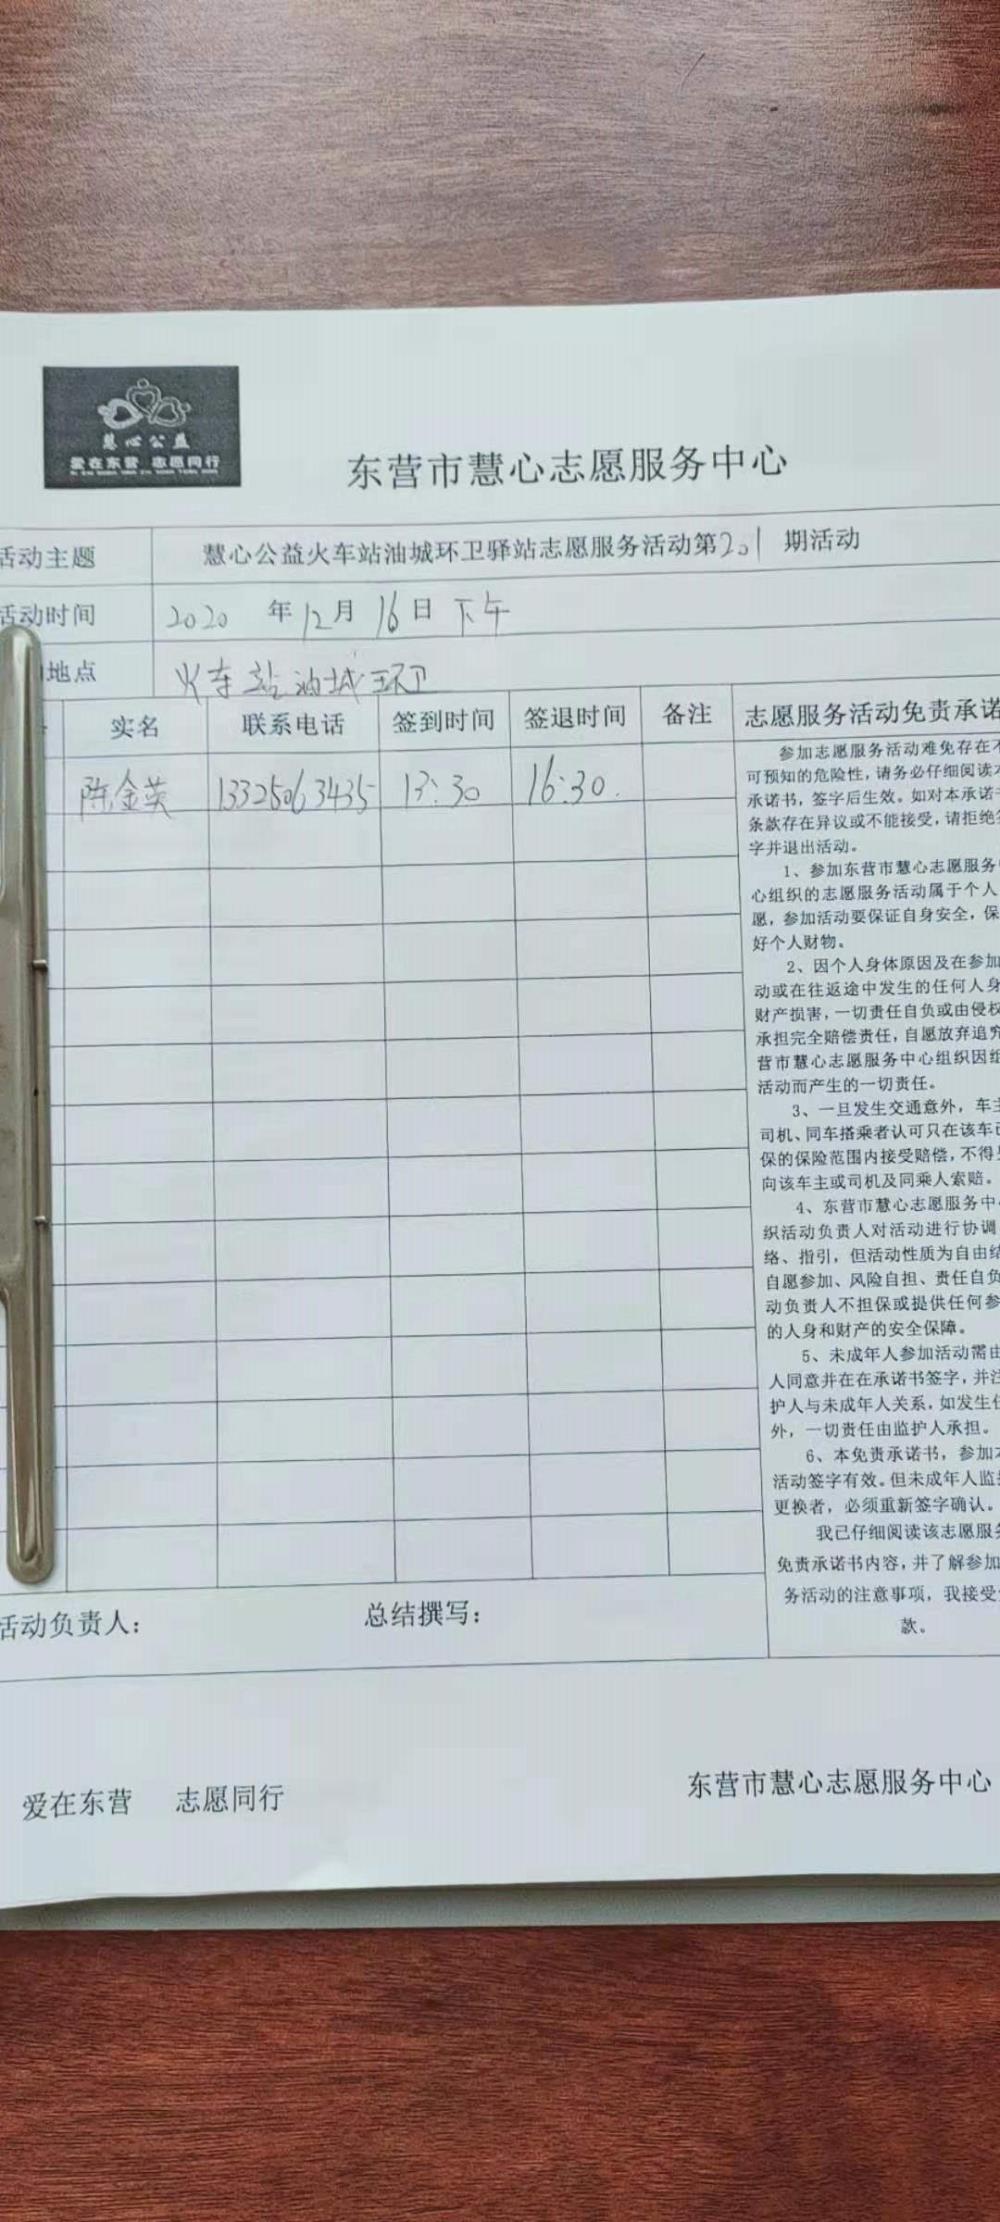 慧心公益
爱在东营 志愿同行
东营市慧心志愿服务中心
活动主题 慧心公益火车站油城环卫驿站志愿服务活动第201期活动
活动时间 2020 年 12月 16日 下午
地点 火车站油城环卫
实名 联系电话 签到时间 签退时间 备注 志愿服务活动免责承诺
陈金英 13325063435 13:30 16:30.
参加志愿服务活动难免存在不
可预知的危险性，请务必仔细阅读本
承诺书，签字后生效。如对本承诺书
条款存在异议或不能接受，请拒绝签
字并退出活动。
1、参加东营市慧心志愿服务中
心组织的志愿服务活动属于个人
愿，参加活动要保证自身安全，保
好个人财物。
2、因个人身体原因及在参加
动或在往返途中发生的任何人身
财产损害，一切责任自负或由侵权
承担完全赔偿责任，自愿放弃追究
营市慧心志愿服务中心组织因组
活动而产生的一切责任。
3、一旦发生交通意外，车主
司机、同车搭乘者认可只在该车已
保的保险范围内接受赔偿，不得另
向该车主或司机及同乘人索赔。
4、东营市慧心志愿服务中心
织活动负责人对活动进行协调
络、指引，但活动性质为自由结
自愿参加、风险自担、责任自负
动负责人不担保或提供任何参
的人身和财产的安全保障。
5、未成年人参加活动需由
人同意并在在承诺书签字，并注
护人与未成年人关系，如发生任
外，一切责任由监护人承担。
6、本免责承诺书，参加本
活动签字有效。但未成年人监护
更换者，必须重新签字确认。
我已仔细阅读该志愿服务
免责承诺书内容，并了解参加
务活动的注意事项，我接受
款。
活动负责人： 总结撰写：
爱在东营 志愿同行 东营市慧心志愿服务中心